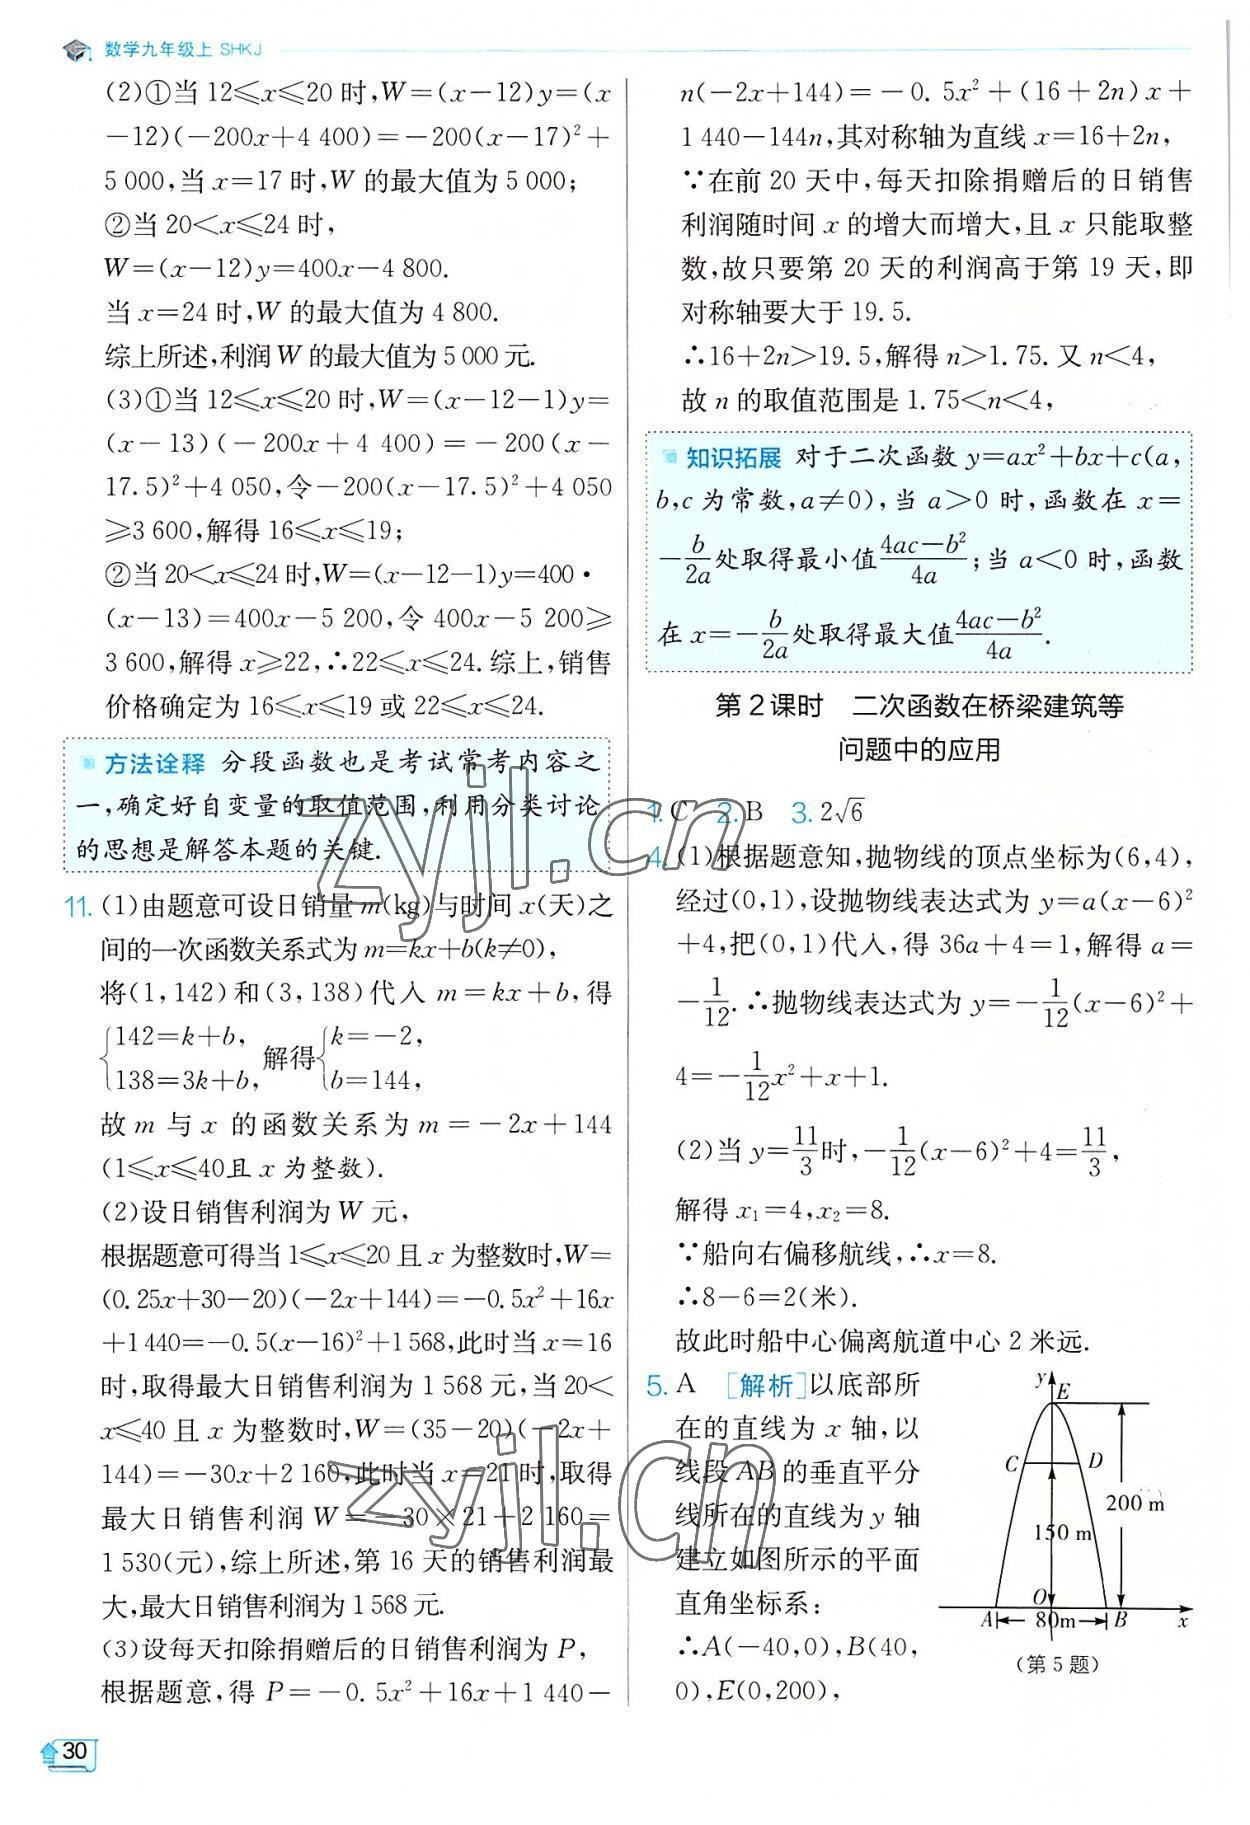 数学九年级上 SHKJ
(2)①当 12≤x≤20 时,W=(x-12)y=(x
-12)(-200x+4 400)=-200(x-17)²+
5 000,当 x=17 时,W 的最大值为 5 000;
②当 20<x≤24 时,
W=(x-12)y=400x-4 800.
当 x=24 时,W 的最大值为 4 800.
综上所述,利润 W 的最大值为 5 000 元.
(3)①当 12≤x≤20 时,W=(x-12-1)y=
(x-13)(-200x+4 400)=-200(x-
17.5)²+4 050,令-200(x-17.5)²+4 050
≥3 600,解得 16≤x≤19;
②当 20<x≤24 时,W=(x-12-1)y=400·
(x-13)=400x-5 200,令 400x-5 200≥
3 600,解得 x≥22,∴22≤x≤24.综上,销售
价格确定为 16≤x≤19 或 22≤x≤24.
方法诠释 分段函数也是考试常考内容之
一,确定好自变量的取值范围,利用分类讨论
的思想是解答本题的关键.
11. (1)由题意可设日销量 m(kg)与时间 x(天)之
间的一次函数关系式为 m=kx+b(k≠0),
将(1,142)和(3,138)代入 m=kx+b,得
{142=k+b, 138=3k+b, 解得 {k=-2, b=144,
故 m 与 x 的函数关系为 m=-2x+144
(1≤x≤40且 x 为整数).
(2)设日销售利润为 W 元,
根据题意可得当 1≤x≤20 且 x 为整数时,W=
(0.25x+30-20)(-2x+144)=-0.5x²+16x
+1 440=-0.5(x-16)²+1 568,此时当 x=16
时,取得最大日销售利润为 1 568 元,当 20<
x≤40 且 x 为整数时,W=(35-20)(-2x+
144)=-30x+2 160,此时当 x=21 时,取得
最大日销售利润 W=-30×21+2 160=
1 530(元),综上所述,第 16 天的销售利润最
大,最大日销售利润为 1 568 元.
(3)设每天扣除捐赠后的日销售利润为 P,
根据题意,得 P=-0.5x²+16x+1 440-
n(-2x+144)=-0.5x²+(16+2n)x+
1 440-144n,其对称轴为直线 x=16+2n,
∵在前 20 天中,每天扣除捐赠后的日销售
利润随时间 x 的增大而增大,且 x 只能取整
数,故只要第 20 天的利润高于第 19 天,即
对称轴要大于 19.5.
∴16+2n>19.5,解得 n>1.75.又 n<4,
故 n 的取值范围是 1.75<n<4,
知识拓展 对于二次函数 y=ax²+bx+c(a,
b,c 为常数,a≠0),当 a>0 时,函数在 x=
-b/2a 处取得最小值 (4ac-b²)/4a;当 a<0 时,函数
在 x=-b/2a 处取得最大值 (4ac-b²)/4a.
第 2 课时 二次函数在桥梁建筑等
问题中的应用
1. C 2. B 3. 2√6
4. (1)根据题意知,抛物线的顶点坐标为(6,4),
经过(0,1),设抛物线表达式为 y=a(x-6)²
+4,把(0,1)代入,得 36a+4=1,解得 a=
-1/12.∴抛物线表达式为 y=-1/12(x-6)²+
4=-1/12x²+x+1.
(2)当 y=11/3 时,-1/12(x-6)²+4=11/3,
解得 x₁=4,x₂=8.
∵船向右偏移航线,∴x=8.
∴8-6=2(米).
故此时船中心偏离航道中心 2 米远.
5. A [解析]以底部所
在的直线为 x 轴,以
线段 AB 的垂直平分
线所在的直线为 y 轴
建立如图所示的平面
直角坐标系:
∴A(-40,0),B(40,
0),E(0,200),
y
E
C
D
200 m
150 m
O
A
80m
B
x
(第 5 题)
30
zyjl.cn
zyjl.cn